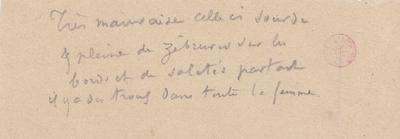 Très mauvaise celle ci sourde
& pleine de zébrures sur les
bords et de saletés partout
il y a des trous dans toute la femme